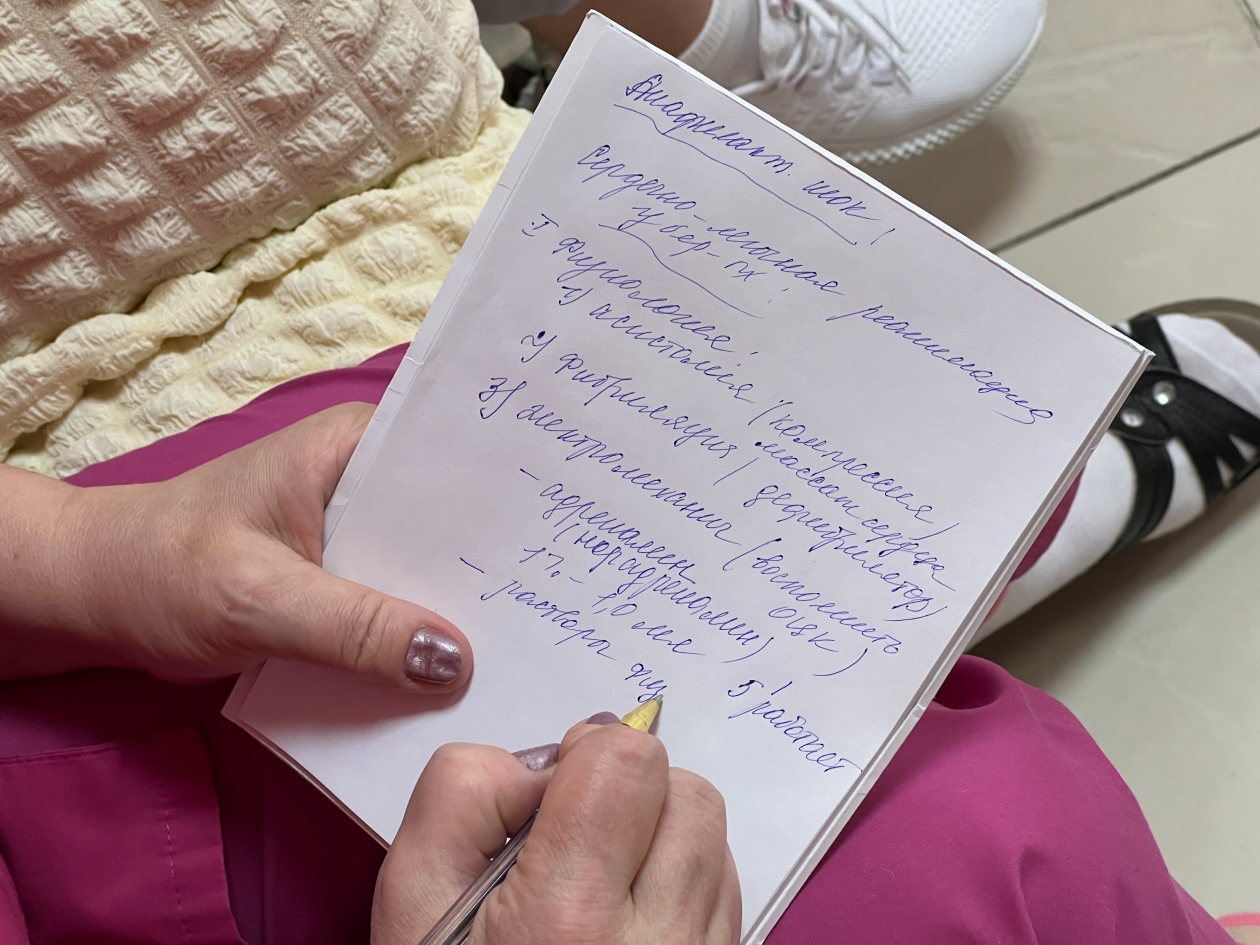 Анафилакт. шок!
Сердечно-легочная реанимация
у бер-ых!
I Физиология:
1) асистолия (компрессия,
массаж сердца
2) фибриляция (дефибрилятор)
3) электромеханич (восполнить
ОЦК)
- адреналин
(норадреналин)
1% - 1,0 мл
5' работает
- растворы фи